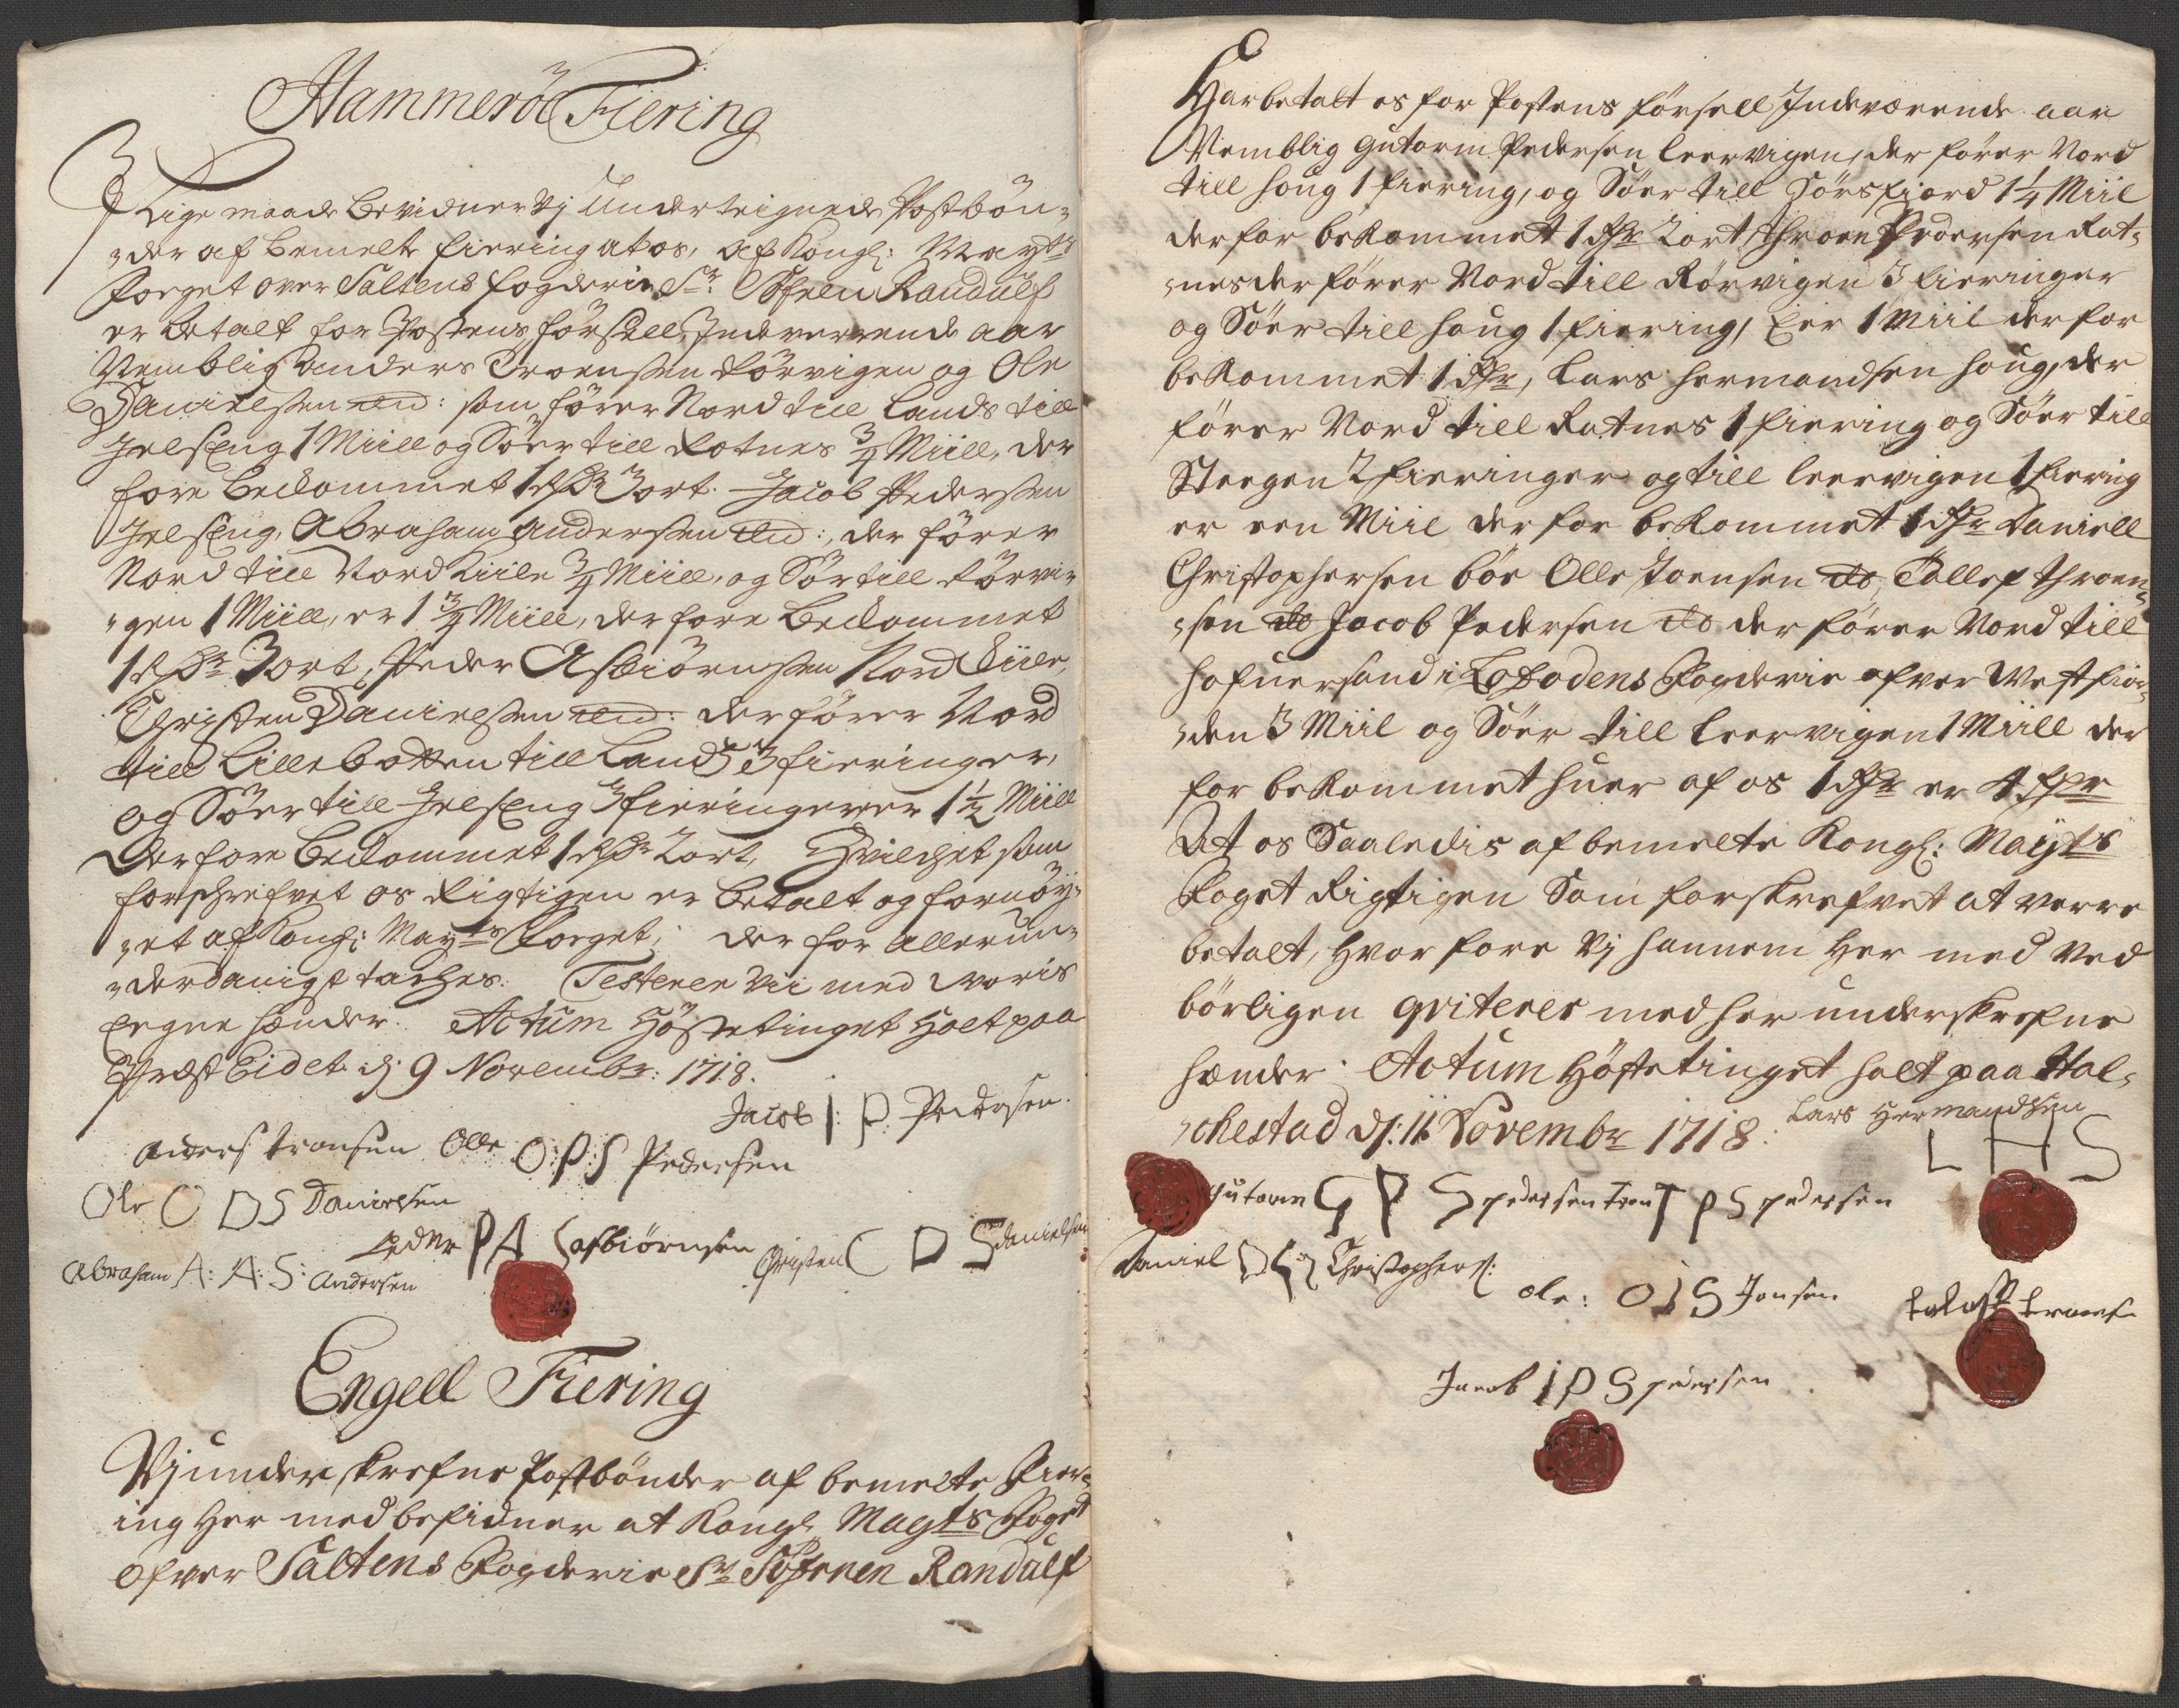 Hammeröe Fiering
J Lige maade bevidner Vj Underteignede Postbön-
-der af bemelte fiering at os, af Kongl: Mayts
Foeget over Saltens fogderie Sr. Söfren Randulf
er betalt for Postens förssell Indeverrende aar
Nemblig Anders Troenssen Körvigen og Ole
Danielssen ded: som förer Nord till Lands till
Jelseng 1 Miill og Söer till Rotnes 3/4 Miill, der
fore bekommet 1 rdr 3 ort. Jacob Pederssen
Jelseng, Abraham Anderssen ded:, der förer
Nord till Nord Kiile 3/4 Miill, og Sör till Körvi-
-gen 1 Miill, er 1 3/4 Miill, der fore bekommet
1 rdr 3 ort, Peder Asbiörnssen Nord Kiile,
Christen Danielssen ded: der förer Nord
till Lillebotten till Lands 3 fieringer,
og Söer till Jelseng 3 fieringer er 1 1/2 Miill
Derfore bekommet 1 rdr 2 ort, Hvilchet som
forschrefvet os Rigtigen er betalt og fornöy-
-et af Kongl: Mayts Foeget, der for allerun-
-derdanigst tackes. Testerer Vii med Voris
Eegne Hænder. Actum Höstetinget Holt paa
Præst Eidet d: 9 Novembr: 1718.
Jacob I: P: Pedersen.
Anders Tronsen Olle O:P:S Pedersen
Ole O D S Danielsen
Peder P A S Asbiörnsen Christen C D S Danielsen
Abraham A: A: S: Andersen
Engell Fiering
Vj underskrefne Postbönder af bemelte Fier-
ing Her med befidner at Kongl. Mayts Foget
ofver Saltens Fogderie Sr Söfrnen Randulf
Har betalt os for Postens försell Indeværende aar
Nemblig Gutorm Pedersen Leervigen, der förer Nord
till Houg 1 fiering, og Söer till Sörsfiord 1 1/4 Miil
derfor bekommet 1 rdr 2 ort Throen Pedersen Rot-
-nes der förer Nord till Körvigen 3 fieringer
og Söer till Houg 1 fiering, Eer 1 Miil derfor
bekommet 1 rdr, Lars Hermandsen Houg, der
förer Nord till Rotnes 1 fiering og Söer till
Steegen 2 fieringer og till Leervigen 1 fiering
er een Miil der for bekommet 1 rdr Daniell
Christophersen böe Olle Joensen do, Tollef Throen-
-sen do Jacob Pedersen do der förer Nord till
Hafuersand i Lofodens Fogderie ofver Westfior-
-den 3 Miil og Söer till Leervigen 1 Miill der
for bekommet huer af os 1 rdr er 4 rdr
At os Saaledis af bemelte Kongl: Mayts
Foget Rigtigen Som forskrefvet at verre
betalt, Hvor fore Vj Hannem Her med Ved
börligen qviterer med her underskrefne
Hænder. Actum Höstetinget Holt paa Hal-
-chestad d: 11 Novembr 1718.
Lars Hermandsen
L H S
Gutorm G P S Pedersen Tron T P S Pedersen
Daniel D C Christophers:
Ole: O I S Jonsen
Tolof Tronsen
Jacob I P S Pedersen